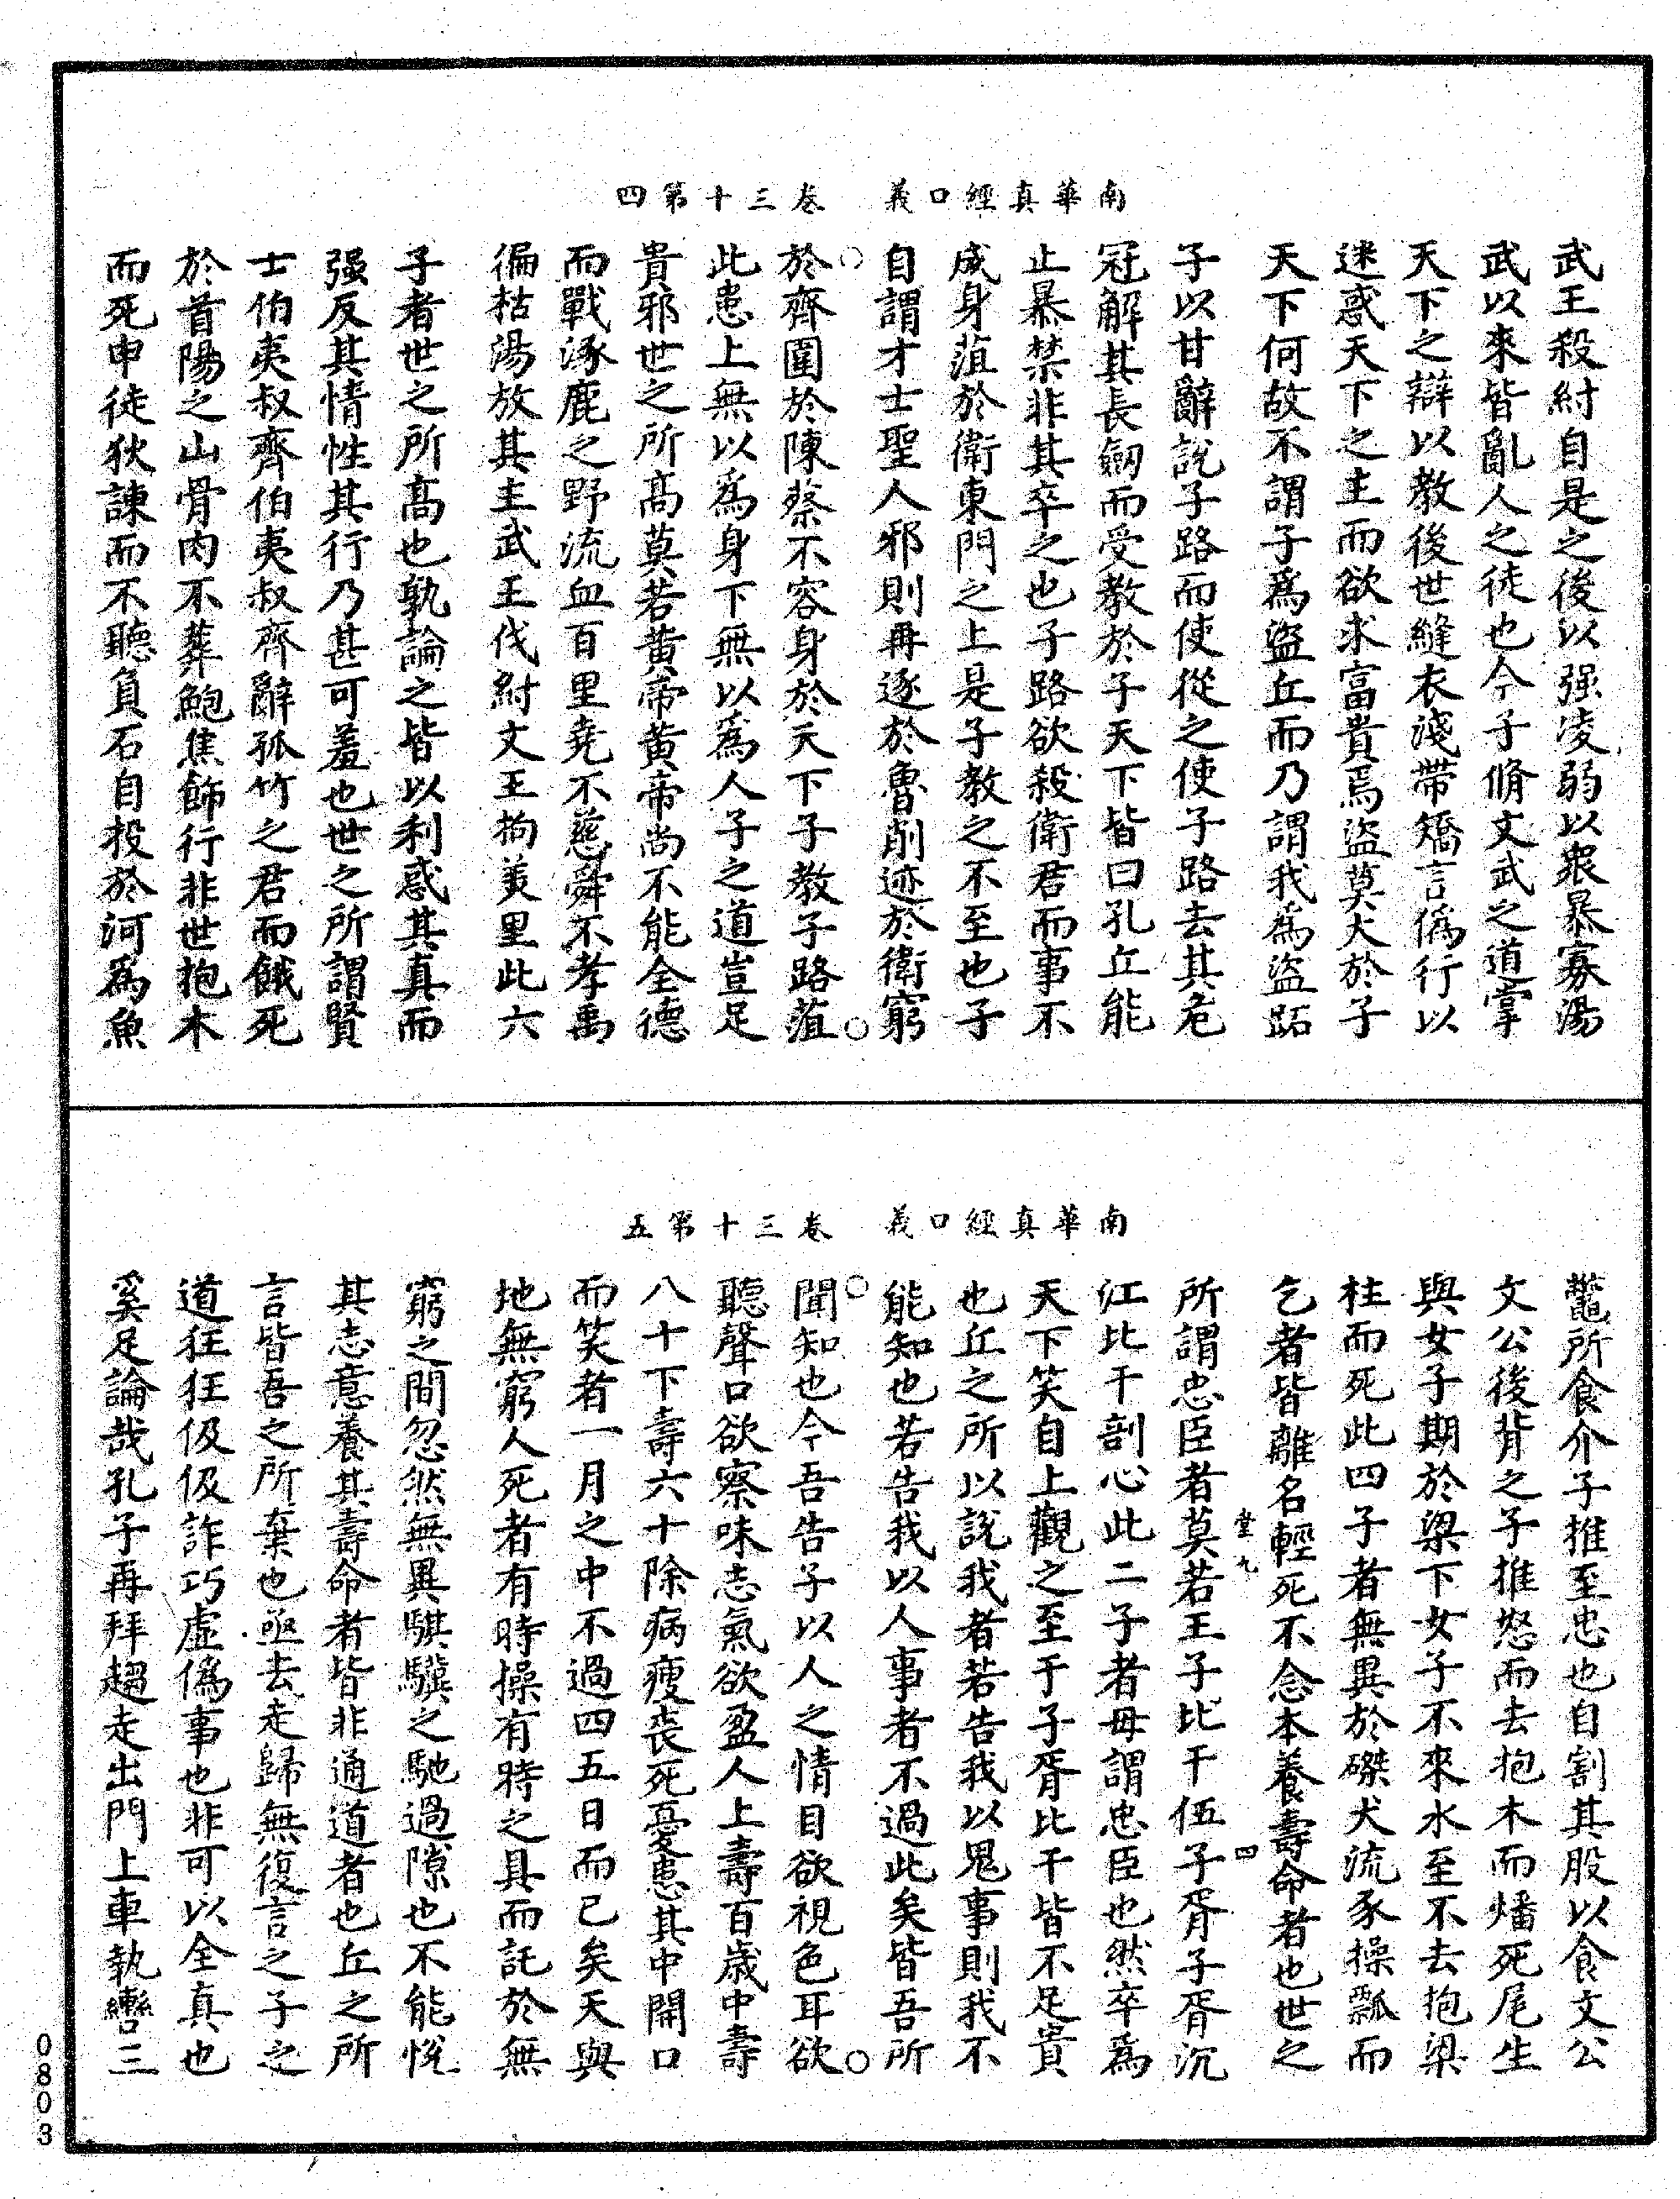 南華真經口義　卷三十第四
武王殺紂自是之後以强凌弱以衆暴寡湯
武以來皆亂人之徒也今子脩文武之道掌
天下之辯以教後世縫衣淺帶矯言偽行以
迷惑天下之主而欲求富貴焉盜莫大於子
天下何故不謂子爲盜丘而乃謂我爲盜跖
子以甘辭說子路而使從之使子路去其危
冠解其長劒而受教於子天下皆曰孔丘能
止暴禁非其卒之也子路欲殺衛君而事不
成身菹於衛東門之上是子教之不至也子
自謂才士聖人邪則再逐於魯削迹於衛窮
於齊圍於陳蔡不容身於天下子教子路菹
此患上無以爲身下無以爲人子之道豈足
貴邪世之所高莫若黃帝黃帝尚不能全德
而戰涿鹿之野流血百里堯不慈舜不孝禹
徧枯湯放其主武王伐紂文王拘羑里此六
子者世之所高也孰論之皆以利惑其真而
强反其情性其行乃甚可羞也世之所謂賢
士伯夷叔齊伯夷叔齊辭孤竹之君而餓死
於首陽之山骨肉不葬鮑焦飾行非世抱木
而死申徒狄諫而不聽負石自投於河爲魚
南華真經口義　卷三十第五
鼈所食介子推至忠也自割其股以食文公
文公後背之子推怒而去抱木而燔死尾生
與女子期於梁下女子不來水至不去抱梁
柱而死此四子者無異於磔犬流豕操瓢而
乞者皆離名輕死不念本養壽命者也世之
堂九　四
所謂忠臣者莫若王子比干伍子胥子胥沉
江比干剖心此二子者毋謂忠臣也然卒爲
天下笑自上觀之至于子胥比干皆不足貴
也丘之所以說我者若告我以鬼事則我不
能知也若告我以人事者不過此矣皆吾所
聞知也今吾告子以人之情目欲視色耳欲
聽聲口欲察味志氣欲盈人上壽百歲中壽
八十下壽六十除病瘦喪死憂患其中開口
而笑者一月之中不過四五日而已矣天與
地無窮人死者有時操有時之具而託於無
窮之間忽然無異騏驥之馳過隙也不能悅
其志意養其壽命者皆非通道者也丘之所
言皆吾之所棄也亟去走歸無復言之子之
道狂狂伋伋詐巧虛偽事也非可以全真也
奚足論哉孔子再拜趨走出門上車執轡三
0803